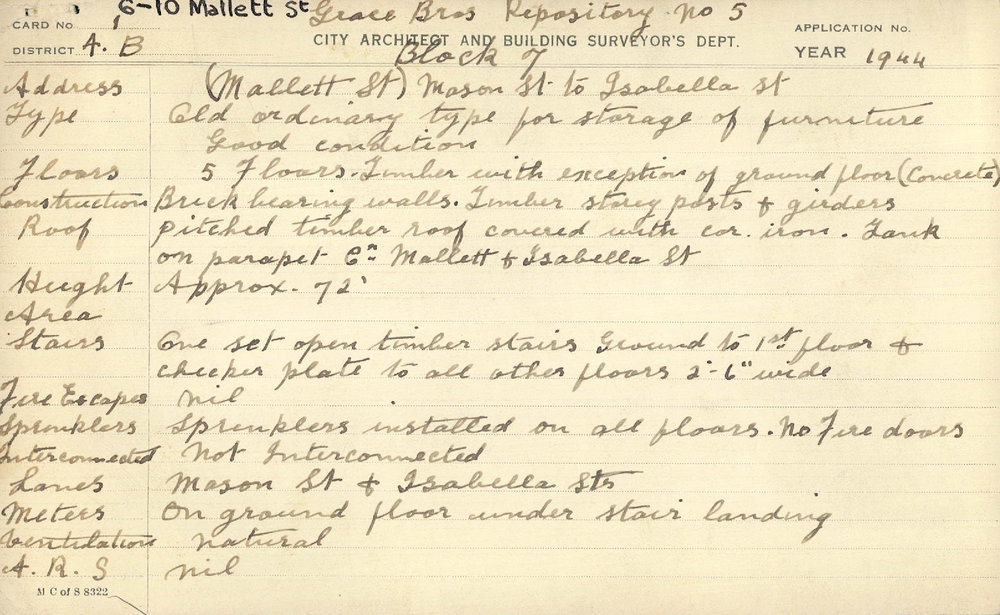 6-10 Mallett St Grace Bros Repository. No 5
CARD No 1
CITY ARCHITECT AND BUILDING SURVEYOR'S DEPT.
APPLICATION No.
DISTRICT A. B
Block 7
YEAR 1944
Address (Mallett St) Mason St to Isabella St
Type Old ordinary type for storage of furniture
Good condition
Floors 5 Floors. Timber with exception of ground floor (Concrete)
Construction Brick bearing walls. Timber storey posts & girders
Roof Pitched timber roof covered with cor. iron. Tank
on parapet Cnr Mallett & Isabella St
Height Approx. 72'
Area
Stairs One set open timber stairs Ground to 1st floor &
checker plate to all other floors 2'-6" wide
Fire Escapes nil
Sprinklers Sprinklers installed on all floors. No Fire doors
Interconnected Not Interconnected
Lanes Mason St & Isabella Sts
Meters On ground floor under stair landing
Ventilation natural
A. R. S nil
M C of S 8322